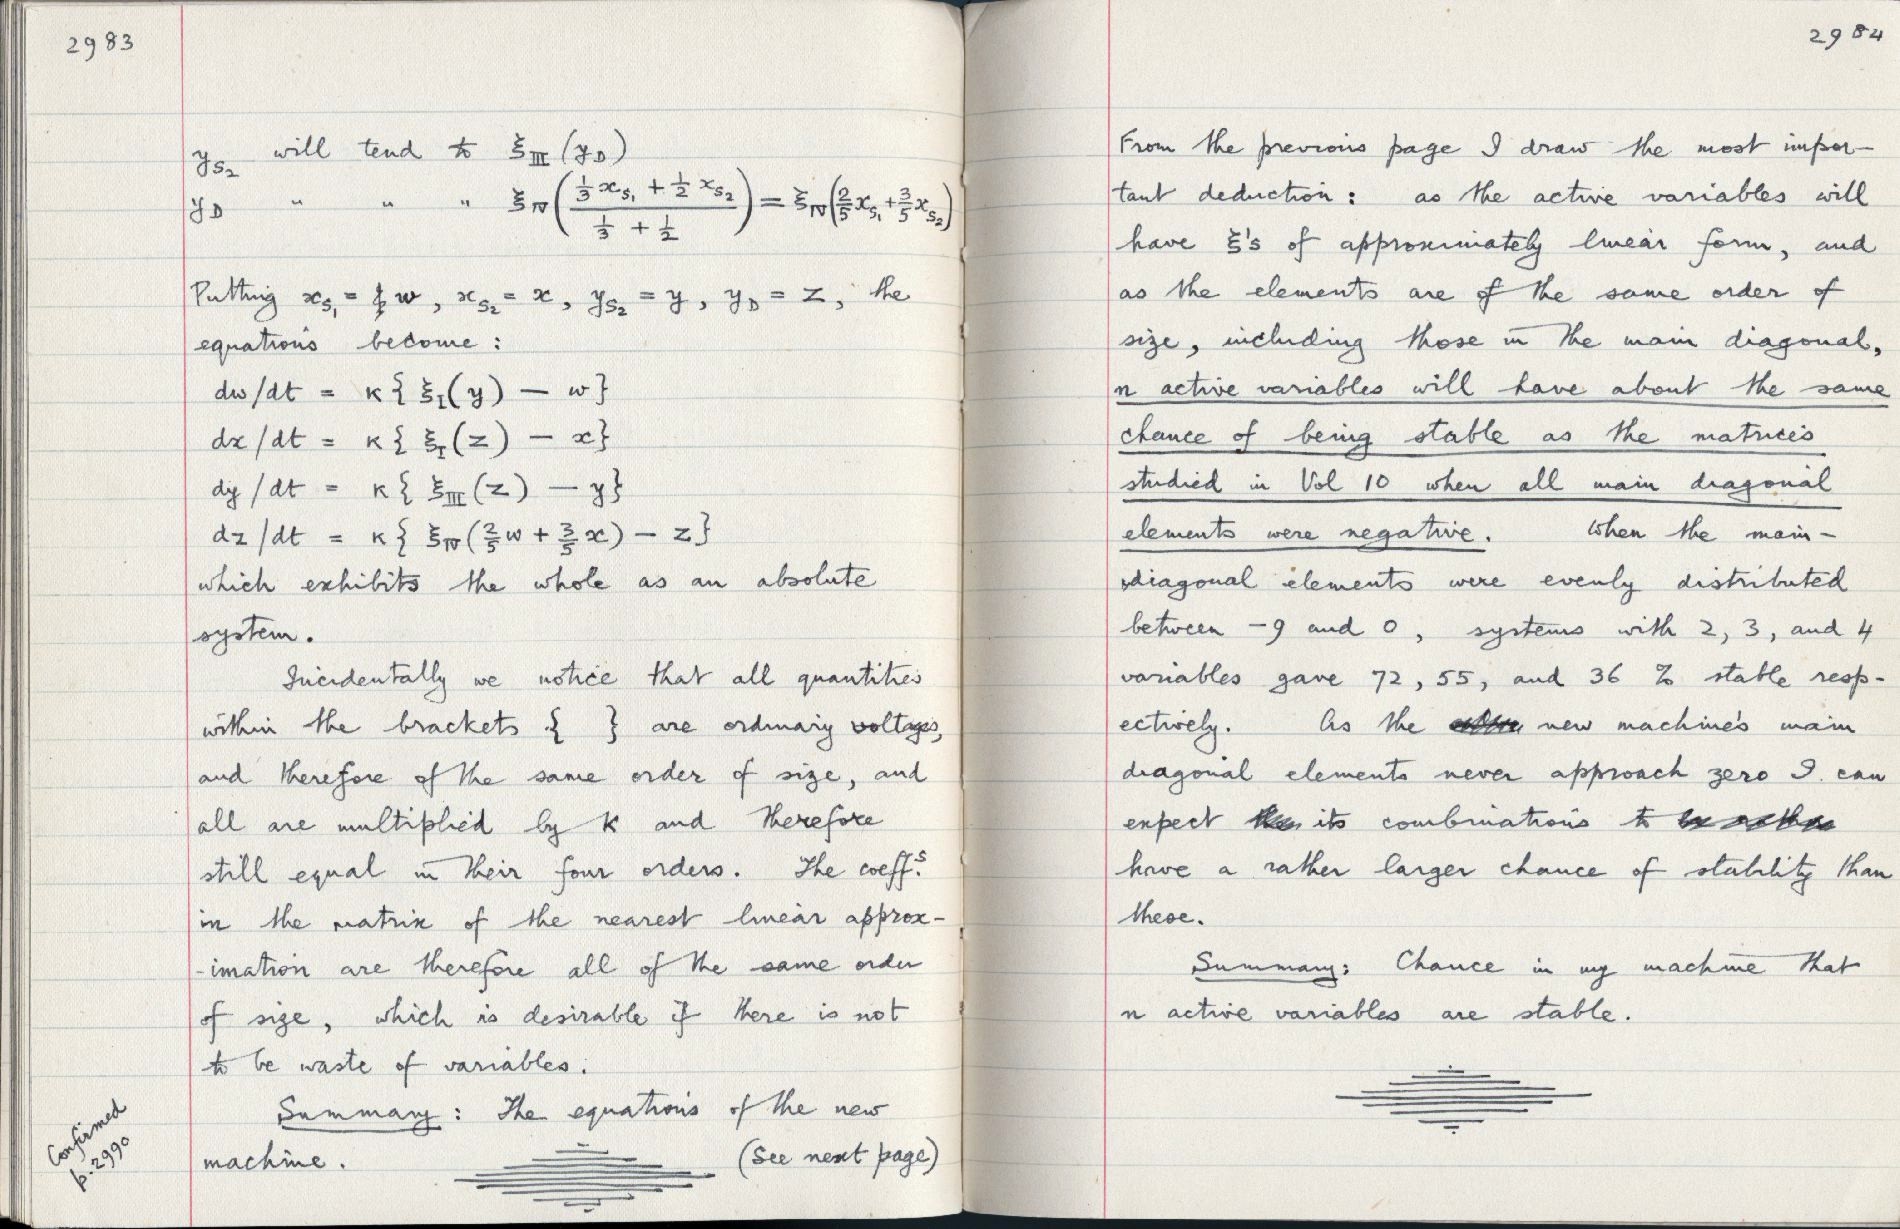 2983
y_S2 will tend to ξ_III (y_D)
y_D " " " ξ_IV ( (1/3 x_S1 + 1/2 x_S2) / (1/3 + 1/2) ) = ξ_IV (2/5 x_S1 + 3/5 x_S2)
Putting x_S1 = w, x_S2 = x, y_S2 = y, y_D = z, the
equations become:
dw/dt = κ{ ξ_I(y) − w}
dx/dt = κ{ ξ_I(z) − x}
dy/dt = κ{ ξ_III(z) − y}
dz/dt = κ{ ξ_IV(2/5 w + 3/5 x) − z}
which exhibits the whole as an absolute
system.
Incidentally we notice that all quantities
within the brackets { } are ordinary voltages,
and therefore of the same order of size, and
all are multiplied by κ and therefore
still equal in their four orders. The coeff.s
in the matrix of the nearest linear approx-
-imation are therefore all of the same order
of size, which is desirable if there is not
to be waste of variables.
Summary: The equations of the new
machine. (See next page)
Confirmed
p. 2990
2984
From the previous page I draw the most impor-
tant deduction: as the active variables will
have ξ's of approximately linear form, and
as the elements are of the same order of
size, including those in the main diagonal,
n active variables will have about the same
chance of being stable as the matrices
studied in Vol 10 when all main diagonal
elements were negative. When the main-
diagonal elements were evenly distributed
between −9 and 0, systems with 2, 3, and 4
variables gave 72, 55, and 36 % stable resp-
ectively. As the new machine's main
diagonal elements never approach zero I can
expect its combinations to
have a rather larger chance of stability than
these.
Summary: Chance in my machine that
n active variables are stable.